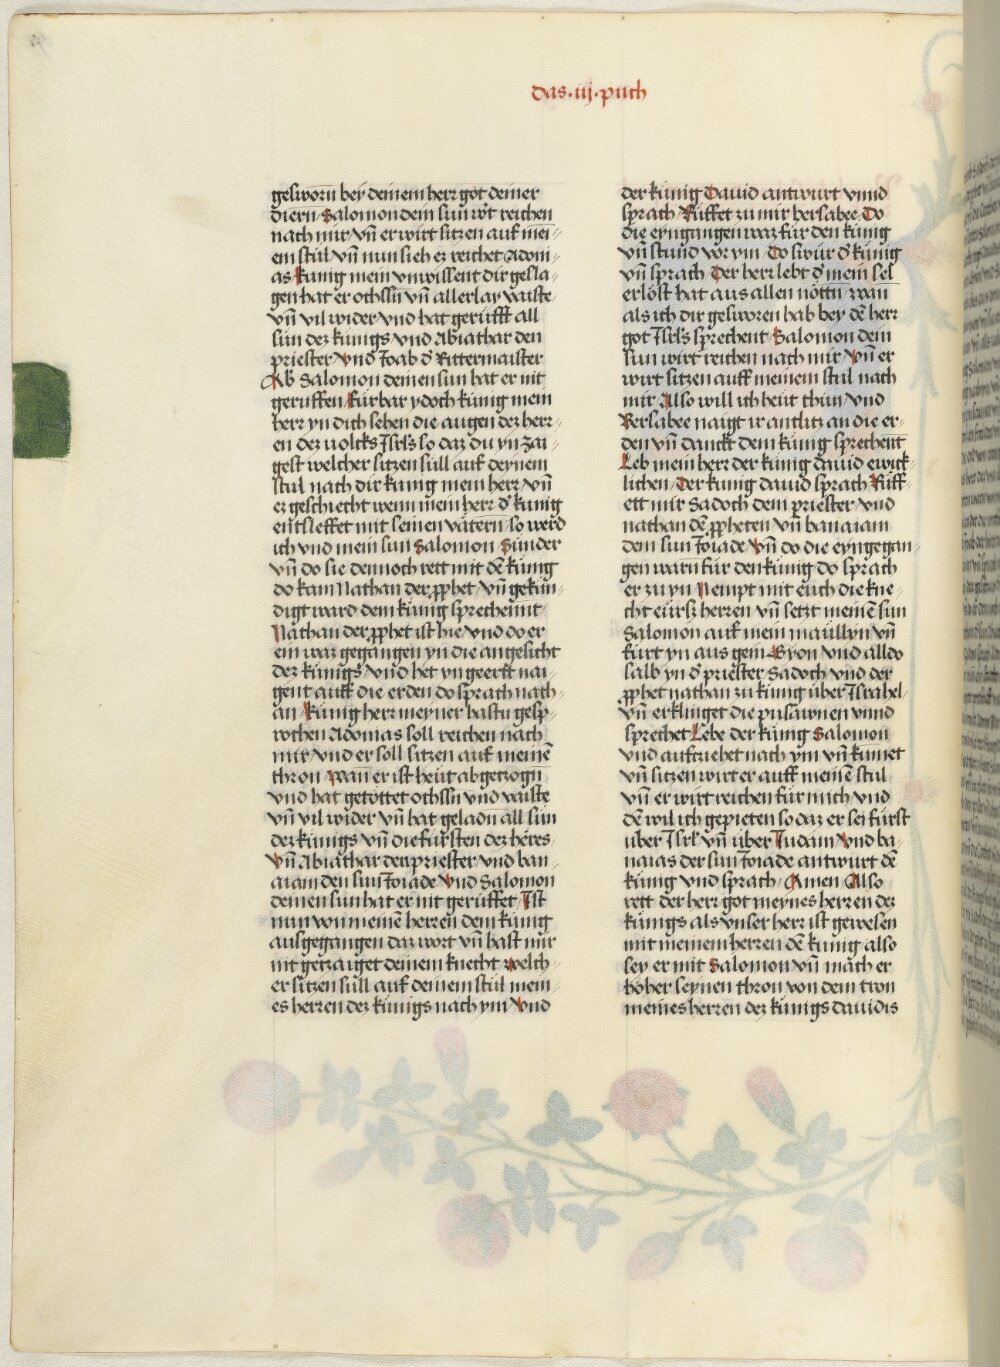 das·iij·puch
gesworn bey deinem herr got deiner
diern Salomon dein sun wirt reichen
nach mir vn̄ er wirt sitzen auf mei-
em stůl vn̄ nun sieh er reichet Adoni-
as kunig mein vnwissent dir gesla-
gen hat er ochssn vn̄ allerlay vaiste
vn̄ vil wider vnd hat gerufft all
sün dez künigs vnd Abiathar den
priester vnd Joab d' Rittermaister
Ab Salomon deinen sun hat er nit
geruffen fürbar ydoch künig mein
herr yn dich sehen die augen dez herr-
en dez volcks Isrls so daz du yn zai-
gest welcher sitzen süll auf deynem
stul nach dir kunig mein herr vn̄
ez geschiecht wenn mein herr d' künig
entsleffet mit seinen vätern so werd
ich vnd mein sun Salomon Sünder
vn̄ do sie dennoch rett mit dē künig
do kam Nathan der pphet vn̄ gekün-
digt ward dem künig sprechennt
Nathan der pphet ist hie vnd do er
ein waz gegangen yn die angesicht
dez künigs vnd het yn geerft nai-
gent auff die erden do sprach nath-
an künig herr meyner hastu gesp-
rochen Adonias soll reichen nach
mir vnd er soll sitzen auf meinē
thron wan̄ er ist heüt abgezogn
vnd hat getöttet ochssn vnd vaiste
vn̄ vil wider vn̄ hat geladn all sün
dez künigs vn̄ die fürsten dez heres
vn̄ Abiathar den priester vnd ban-
aiam den sun Joiade vnd Salomon
deinen sun hat er nit gerüffet Ist
nun von meinē herren dem künig
ausgegangen daz wort vn̄ hast mir
nit gezauget deinem knecht welch-
er sitzen süll auf deinem stül mein-
es herren dez künigs nach ym Vnd
der künig Dauid antwurt vnnd
sprach Rüffet zu mir bersabee Do
die eyngangen waz für den künig
vn̄ stund vor ym Do swür d' künig
vn̄ sprach Der herr lebt d' mein sel
erlöst hat aus allen nöttn wan
als ich dir gesworen hab bey dē herr
got Isrls sprechent Salomon dein
sun wirt reichen nach mir vn̄ er
wirt sitzen auff meinem stül nach
mir Also will ich heüt thün vnd
Bersabee naigt ir antlitz an die er-
den vn̄ danckt dem künig sprechent
Leb mein herz der künig dauid ewick-
lichen Der kunig dauid sprach Rüff-
ett mir Sadoch dem priester vnd
nathan dē ppheten vn̄ banaiam
dem sun Joiade Vn̄ do die eyngegan-
gen warn für den künig do sprach
er zu yn Nempt mit euch die kne-
cht eürs herren vn̄ setzt meinē sun
Salomon auf mein maüllyn vn̄
fürt yn aus gein Gyon vnd alldo
salb yn d' priester Sadoch vnd der
pphet nathan zu künig über Israhel-
vn̄ erklinget die pusawnen vnnd
sprechet Lebe der künig Salomon
vnd aufziehet nach ym vn̄ kümet
vn̄ sitzen wirt er auff meinē stul
vn̄ er wirt reichen für mich vnd
dē wil ich gepieten so daz er sei fürst
über Isrl vn̄ über Judam vnd ba-
naias der sun Joiade antwurt dē
künig vnd sprach Amen Also
rett der herr got meynes herren dez
künigs als vnser herr ist gewesen
mit meinem herren dē kunig also
sey er mit Salomon vn̄ mach er
höher seynen thron von dem tron
meines herren dez künigs dauidis